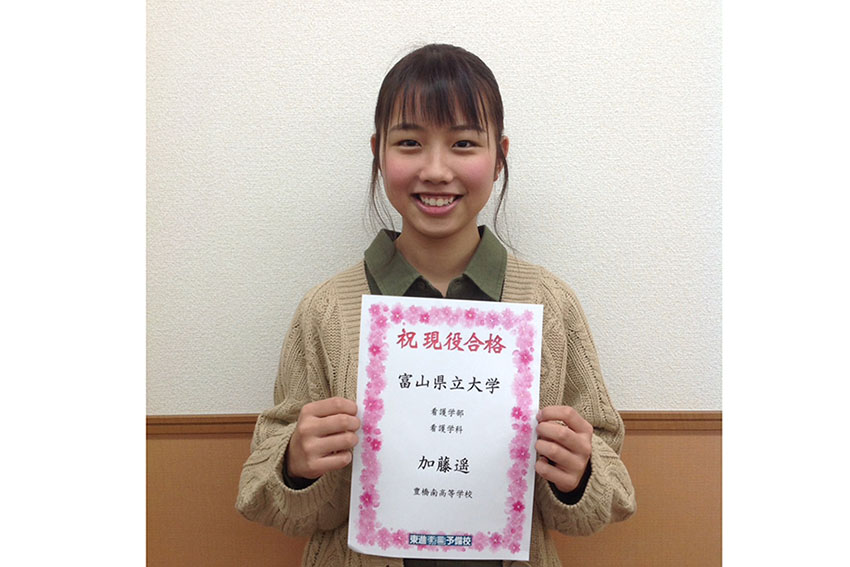 祝 現役合格
富山県立大学
看護学部
看護学科
加藤遥
豊橋南高等学校
東進衛星予備校